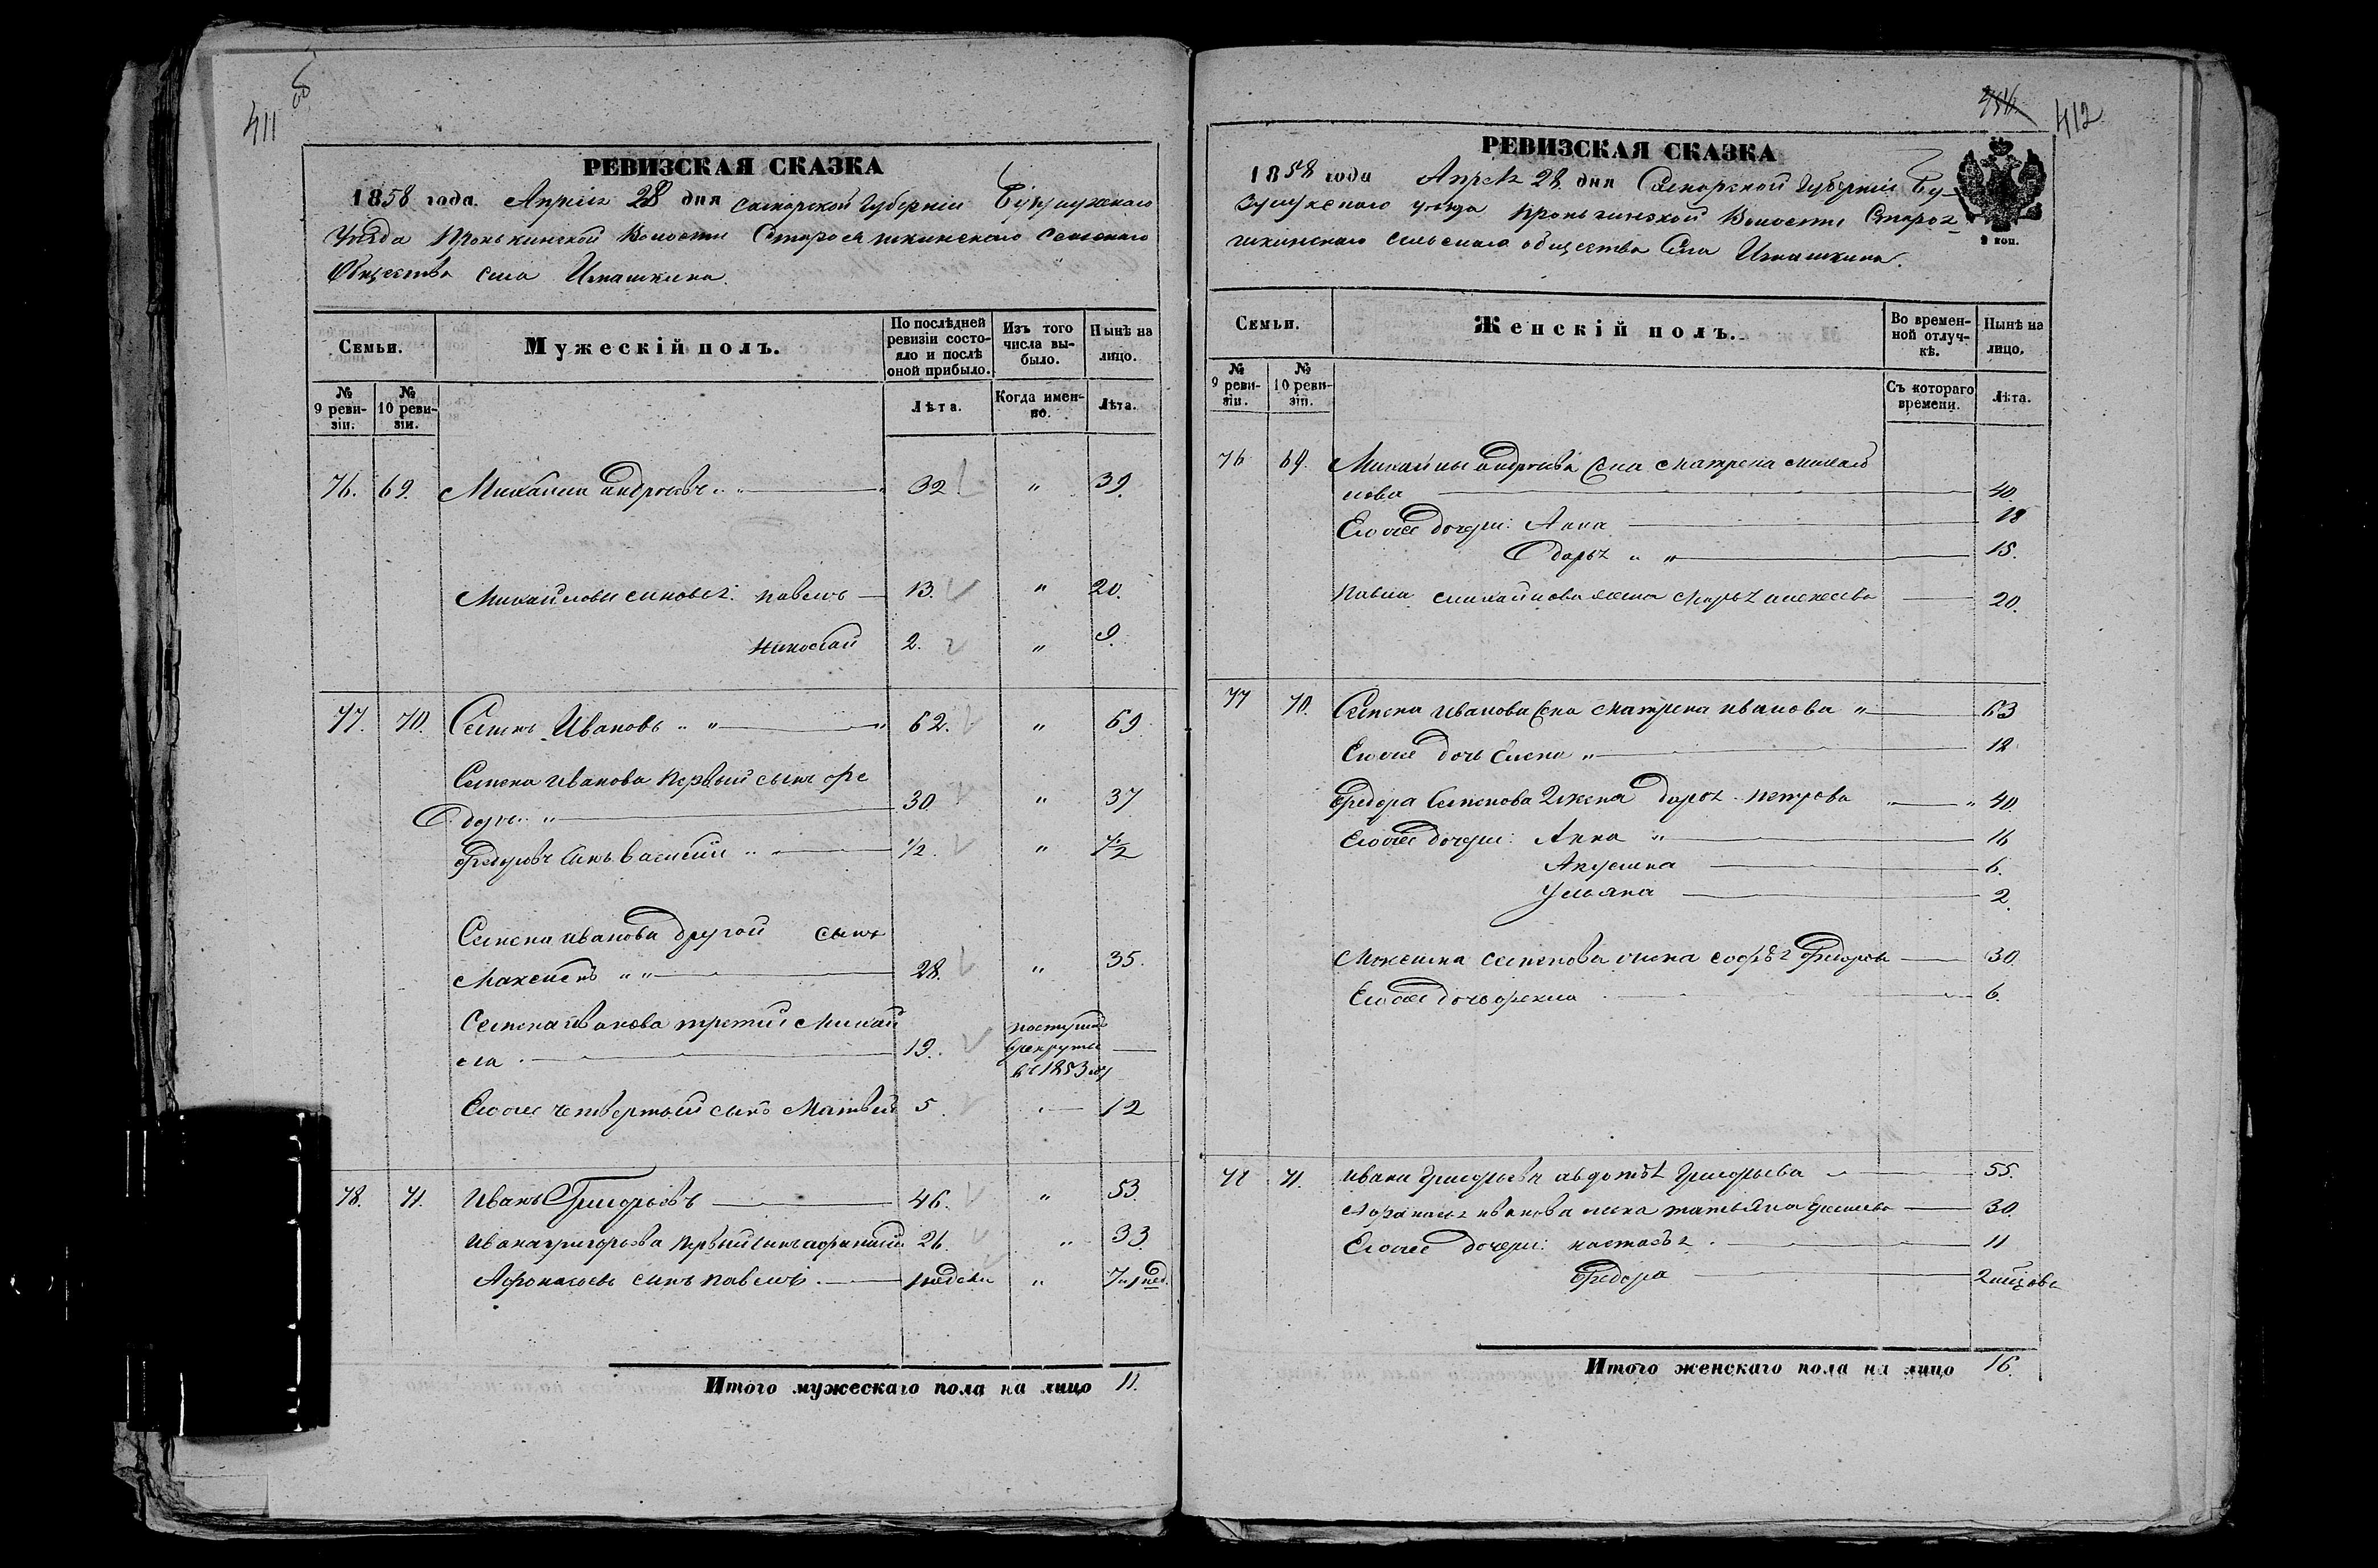 411 об
РЕВИЗСКАЯ СКАЗКА
1858 года Апреля 28 дня Самарской Губерніи Бузулужскаго
Уезда Пронькинской Волости Старояшкинскаго Сельскаго
Общества Села Имашкина.
Семьи.
Мужескій полъ.
По послѣдней ревизіи состояло и послѣ оной прибыло.
Изъ того числа выбыло.
Нынѣ на лицо.
№ 9 ревизіи.
№ 10 ревизіи.
Лѣта.
Когда именно.
Лѣта.
76. 69. Михаила Андреевъ " 32 " 39.
Михайловы сыновья: Павелъ 13. " 20.
Николай 2. " 9.
77. 70. Семенъ Ивановъ " " 62. " 69.
Семена Иванова первый сынъ Фе
доръ " 30 " 37
Федоровъ сынъ Василий 1/2. " 7 1/2
Семена Иванова другой сынъ
Максимъ " " 28. " 35.
Семена Иванова третий Михай
ла 19. поступилъ в рекруты въ 1853 году
Его же четвертый сынъ Матвей 5. " 12
78. 71. Иванъ Григорьевъ 46. " 53.
Ивана Григорьева первый сынъ Афанасий 26. " 33.
Афонасьевъ сынъ Павелъ 1 недели " 7 и 1 нед.
Итого мужескаго пола на лицо 11.
412
РЕВИЗСКАЯ СКАЗКА
1858 года Апреля 28 дня Самарской Губерніи Бу-
зулукскаго уезда Пронькинской Волости Староя
шкинскаго сельскаго общества Села Имашкина.
2 коп.
Семьи.
Женскій полъ.
Во временной отлучкѣ.
Нынѣ на лицо.
№ 9 ревизіи.
№ 10 ревизіи.
Съ котораго времени.
Лѣта.
76 69. Михайлы Андреева жена Матрена Михай
лова 40.
Его же дочери: Анна 18
Дарья " " 15.
Павла Михайлова жена Марья Алексеева 20.
77 70. Семена Иванова жена Матрена Иванова " 63
Его же дочь Елена " 12
Федора Семенова жена Дарья Петрова " 40.
Его же дочери: Анна " 16
Акулина 6.
Ульяна 2.
Максима Семенова жена Софья Федорова 30.
Его же дочь Фекла 6.
78 71. Ивана Григорьева Авдотья Григорьева 55.
Афанасья Иванова жена Татьяна 30.
Его же дочери: Настасья 11
Федора 2 месяцовъ
Итого женскаго пола на лицо 16.